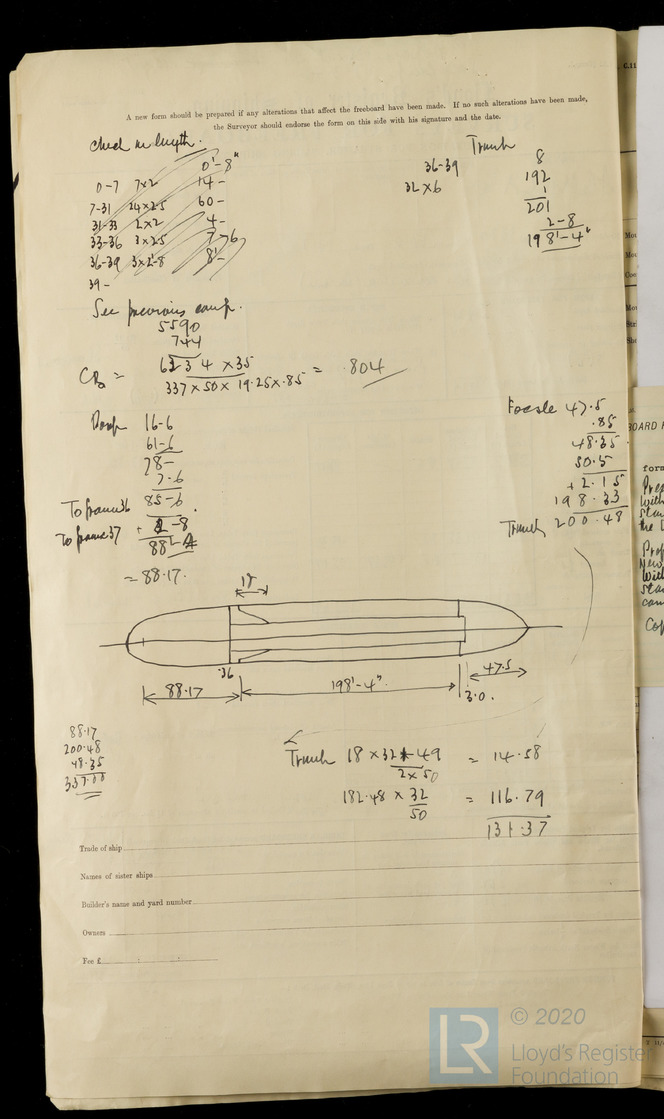 A new form should be prepared if any alterations that affect the freeboard have been made. If no such alterations have been made,
the Surveyor should endorse the form on this side with his signature and the date.
Check on length.
0'-8"
0-7 7x2 14-
7-31 24x2.5 60-
31-33 2x2 4-
33-36 3x2.5 7-6
36-39 3x2'-8 8'-
39-
Trunk
36-39 8
32x6 192
1
201
2-8
198'-4"
See previous comp.
5590
744
6334 x35
CB = = .804
337x50x 19.25x.85
Poop 16-6
61-6
78-
7.6
To frame 36 85-6
To frame 37 + 2-8
88-2
= 88.17.
Focsle 47.5
.85
48.35
50.5
+ 2.15
198.33
Trunk 200.48
18'
36
88.17
198'-4"
47.5
3.0.
88.17
200.48
48.35
337.00
Trunk 18 x 32+49 = 14.58
2x50
182.48 x 32 = 116.79
50
131.37
Trade of ship
Names of sister ships
Builder's name and yard number
Owners
Fee £
© 2020
LR
Lloyd's Register
Foundation